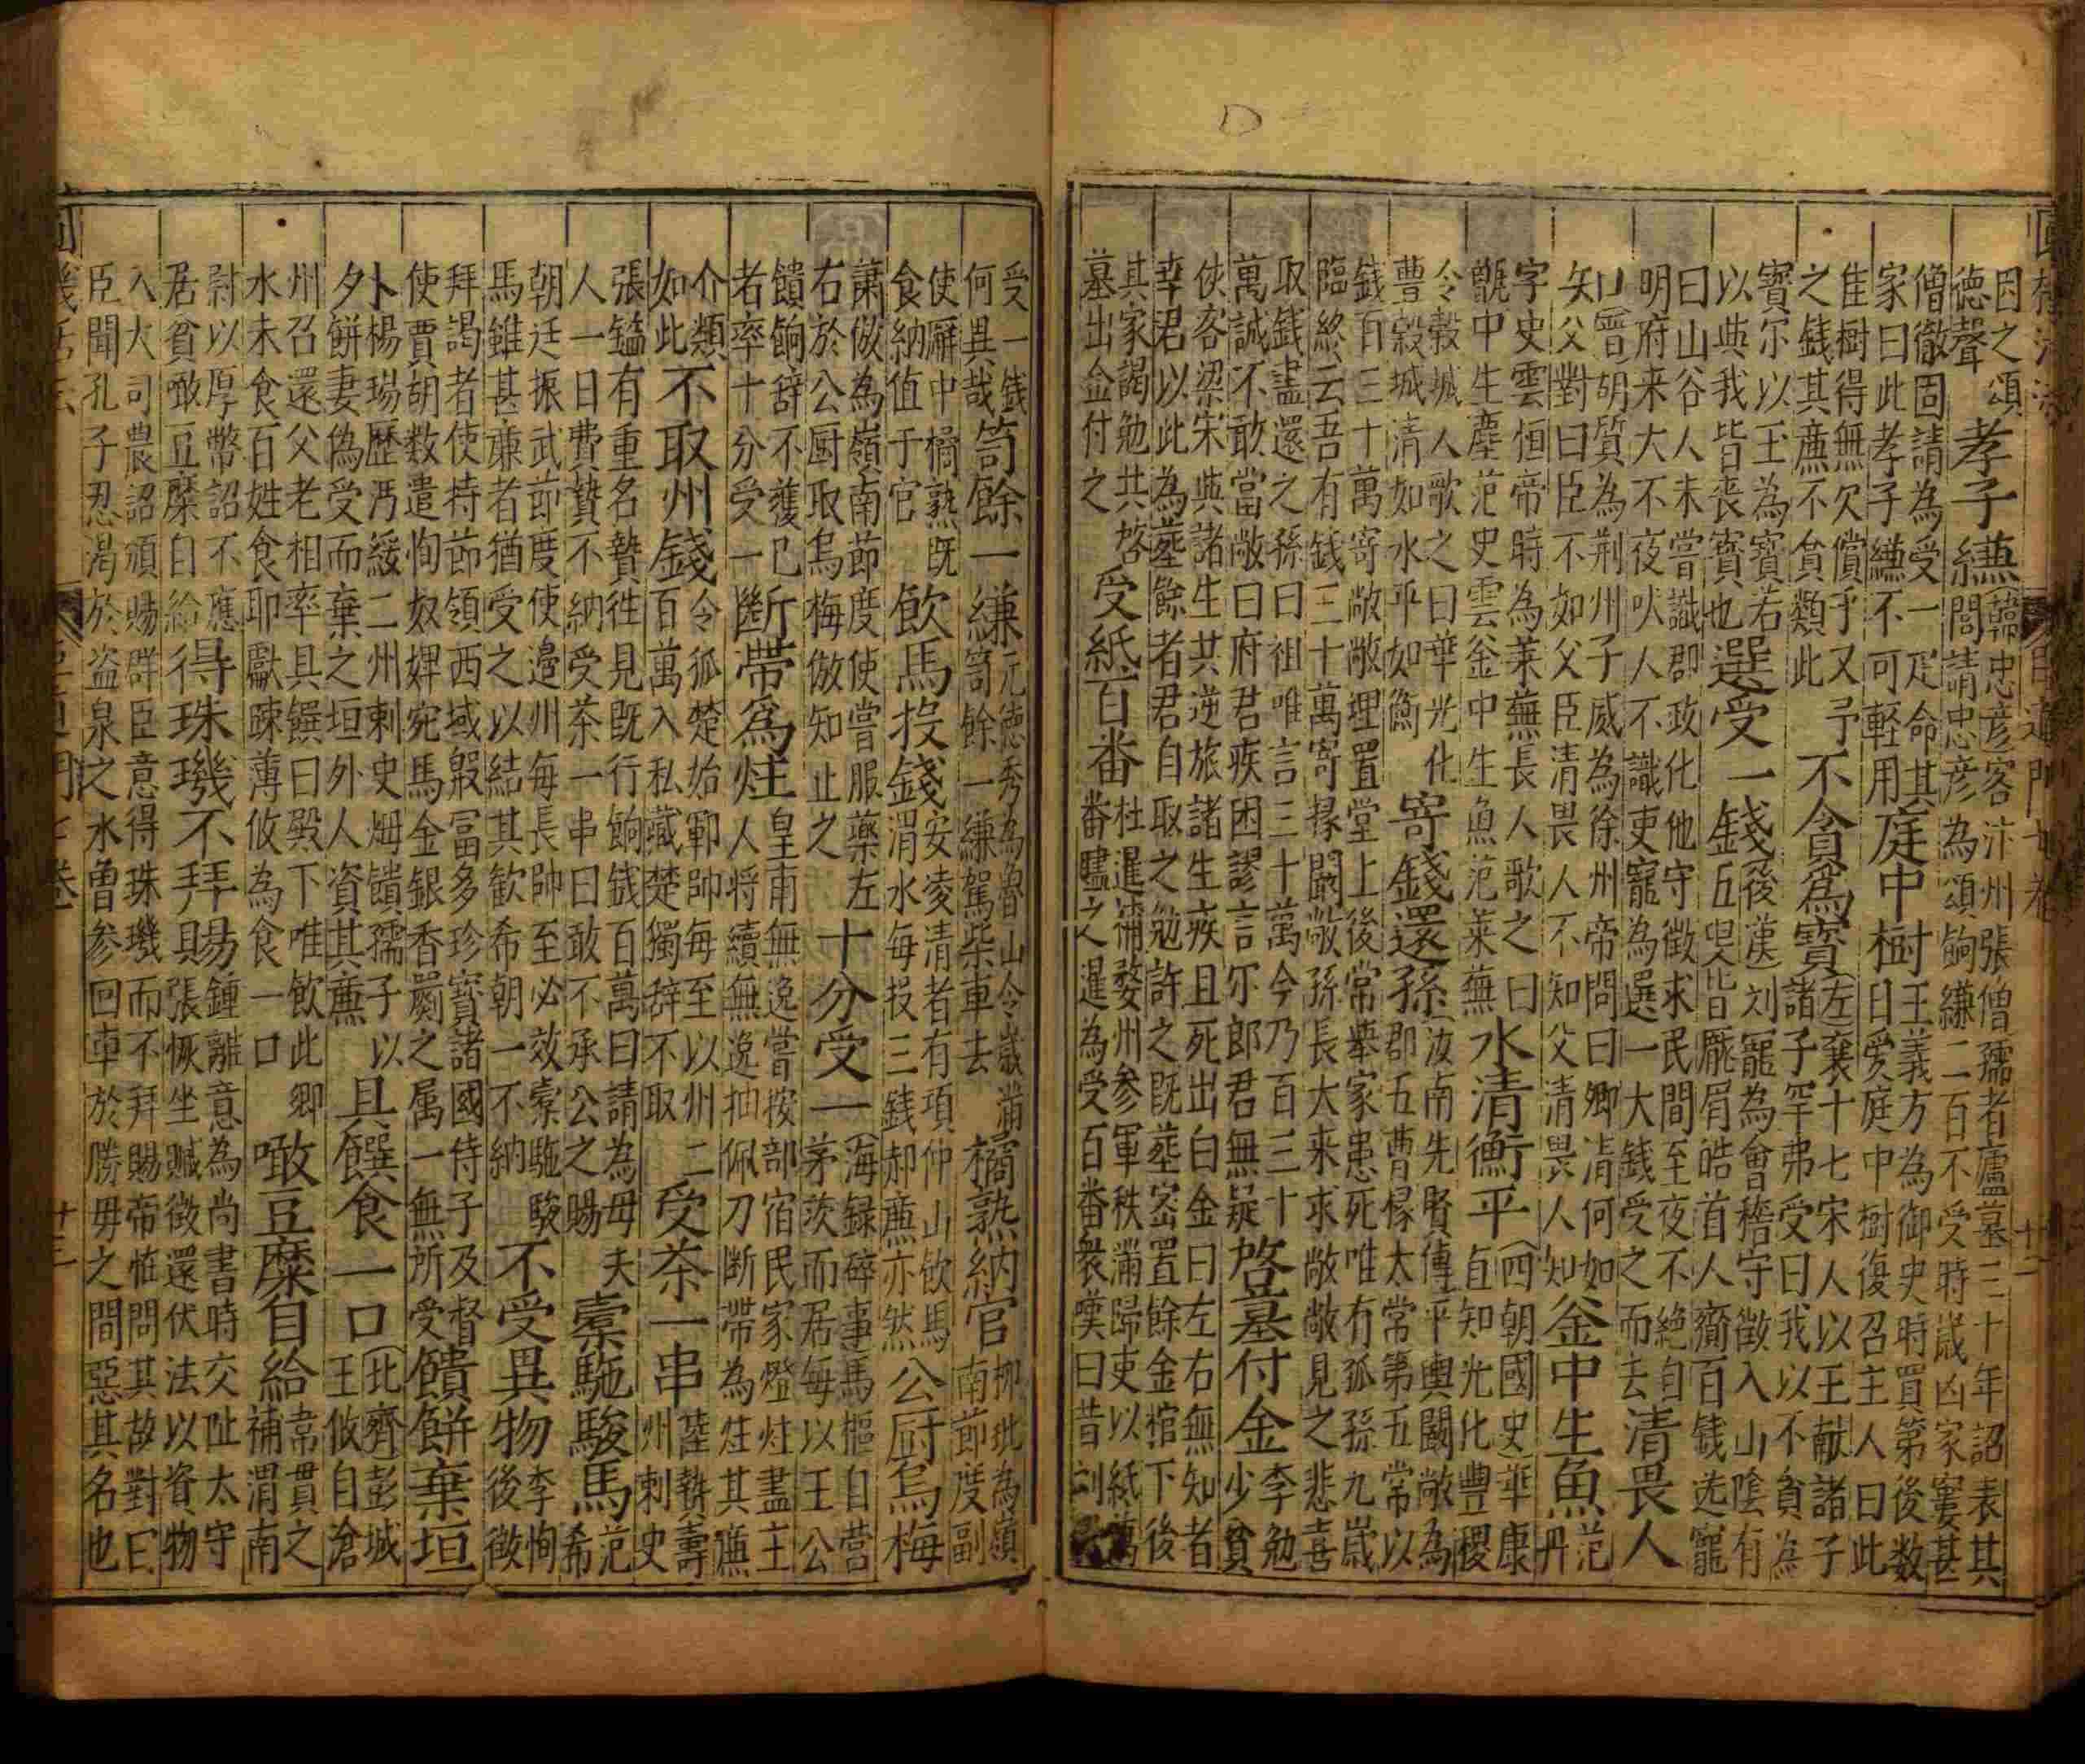 因之頌
德聲
孝子縑
韓忠彦客汴州張僧孺者廬墓三十年詔表其
閭請忠彦為頌餉縑二百不受時歲凶家窶甚
僧徹固請為受一疋命其
家曰此孝子縑不可軽用
庭中樹
王義方為御史時買第後数
日愛庭中樹復召主人曰此
隹樹得無欠償乎又予
之錢其廉不貪類此
不貪為寶
左襄十七宋人以王献諸子
諸子罕弗受曰我以不貪為
寳尔以王為寳若
以與我皆喪寳也
選受一錢
後漢刘寵為會稽守徵入山陰有
五叟皆厖眉皓首人齎百錢送寵
曰山谷人未嘗識郡政化他守徵求民間至夜不絶自
明府来犬不夜吠人不識吏寵為選一大錢受之而去
清畏人
晉胡質為荆州子威為徐州帝問曰卿清何如
父對曰臣不如父臣清畏人不知父清畏人知
釜中生魚
范
丹
字史雲恒帝時為萊蕪長人歌之曰
甑中生塵范史雲釜中生魚范萊蕪
水清衡平
四朝國史華康
直知光化豐稷
令榖城人歌之曰華光化
豊榖城清如水平如衡
寄錢還孫
汝南先賢傳平輿闞敞為
郡五曹掾太常第五常以
錢百三十萬寄敞敞埋置堂上後常舉家患死唯有孤孫九歲
臨終云吾有錢三十萬寄掾闞敞孫長大来求敞敞見之悲喜
取錢盡還之孫曰祖唯言三十萬今乃百三十
萬誠不敢當敞曰府君疾困謬言尔郎君無疑
啓墓付金
李勉
少貧
使客梁宋與諸生共逆旅諸生疾且死出白金曰左右無知者
幸君以此為塟餘者君自取之勉許之既塟宻置餘金棺下後
其家謁勉共啓
墓出金付之
受紙百番
杜暹補婺州参軍秩滿歸吏以紙萬
番贐之暹為受百番衆嘆曰昔刘
受一錢
何異哉
笥餘一縑
元德秀為魯山令歲滿
笥餘一縑駕柴車去
橘熟納官
柳玭為嶺
南節度副
使廨中橘熟既
食納值于官
飲馬投錢
安凌清者有項仲山飲馬
渭水每投三錢郝廉亦然
公厨烏梅
蕭倣為嶺南節度使嘗服藥左
右於公厨取烏梅倣知止之
十分受一
海録碎事馬樞自營
茅茨而居每以王公
饋餉辞不獲已
者率十分受一
斷帶為炷
皇甫無逸嘗按部宿民家燈炷盡主
人将續無逸抽佩刀断帶為炷其廉
介類
如此
不取州錢
令狐楚始鄆帥每至以州二
百萬入私藏楚獨辞不取
受茶一串
陸贄壽
州刺史
張鎰有重名贄徃見既行餉錢百萬曰請為母夫
人一日費贄不納受茶一串曰敢不承公之賜
橐駞駿馬
范
希
朝廷振武節度使邉州每長帥至必效橐駞駿
馬雖甚廉者猶受之以結其歓希朝一不納
不受異物
李恂
後徴
拜謁者使持節領西域殷冨多珍寳諸國侍子及督
使賈胡数遣恂奴婢宛馬金銀香罽之属一無所受
饋餅棄垣
楊瑒歷沔綏二州刺史饋孺子以
餅妻偽受而棄之垣外人資其廉
具饌食一口
北齊彭城
王攸自滄
州召還父老相率具饌曰殿下唯飲此卿
水未食百姓食耶獻踈薄攸為食一口
噉豆糜自給
韋貫之
補渭南
尉以厚幣詔不應
居貧噉豆糜自給
得珠璣不拜賜
鍾離意為尚書時交阯太守
張恢坐贓徵還伏法以資物
入大司農詔頒賜群臣意得珠璣而不拜賜帝恠問其故對曰
臣聞孔子忍渴於盗泉之水曽参回車於勝母之閭惡其名也